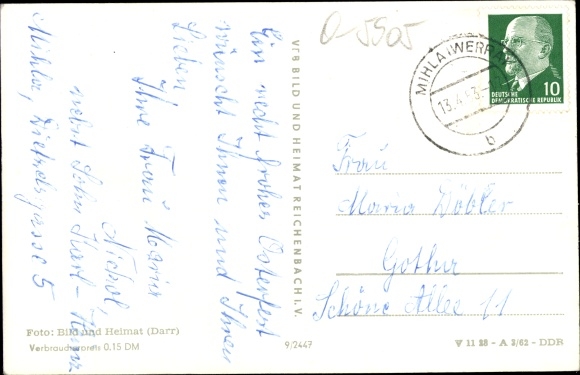 Ein recht frohes Osterfest
wünscht Ihnen und Ihren
Lieben
Ihre Frau Maria
Nickol,
nebst Sohn Karl-Heinz
Mihla,
gasse 5
Foto: Bild und Heimat (Darr)
Verbraucherpreis 0,15 DM
VEB BILD UND HEIMAT REICHENBACH I. V.
9/2447
MIHLA (WERRA)
b
DEUTSCHE
DEMOKRATISCHE REPUBLIK
10
Frau
Maria Döbler
Gotha
Schöne Allee 11
V 11 28 - A 3/62 - DDR